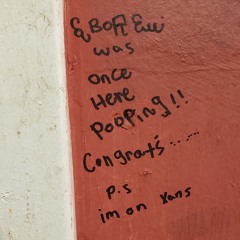 was
once
Here
Pooping!!
Congrats.....
P.S
im on Xans